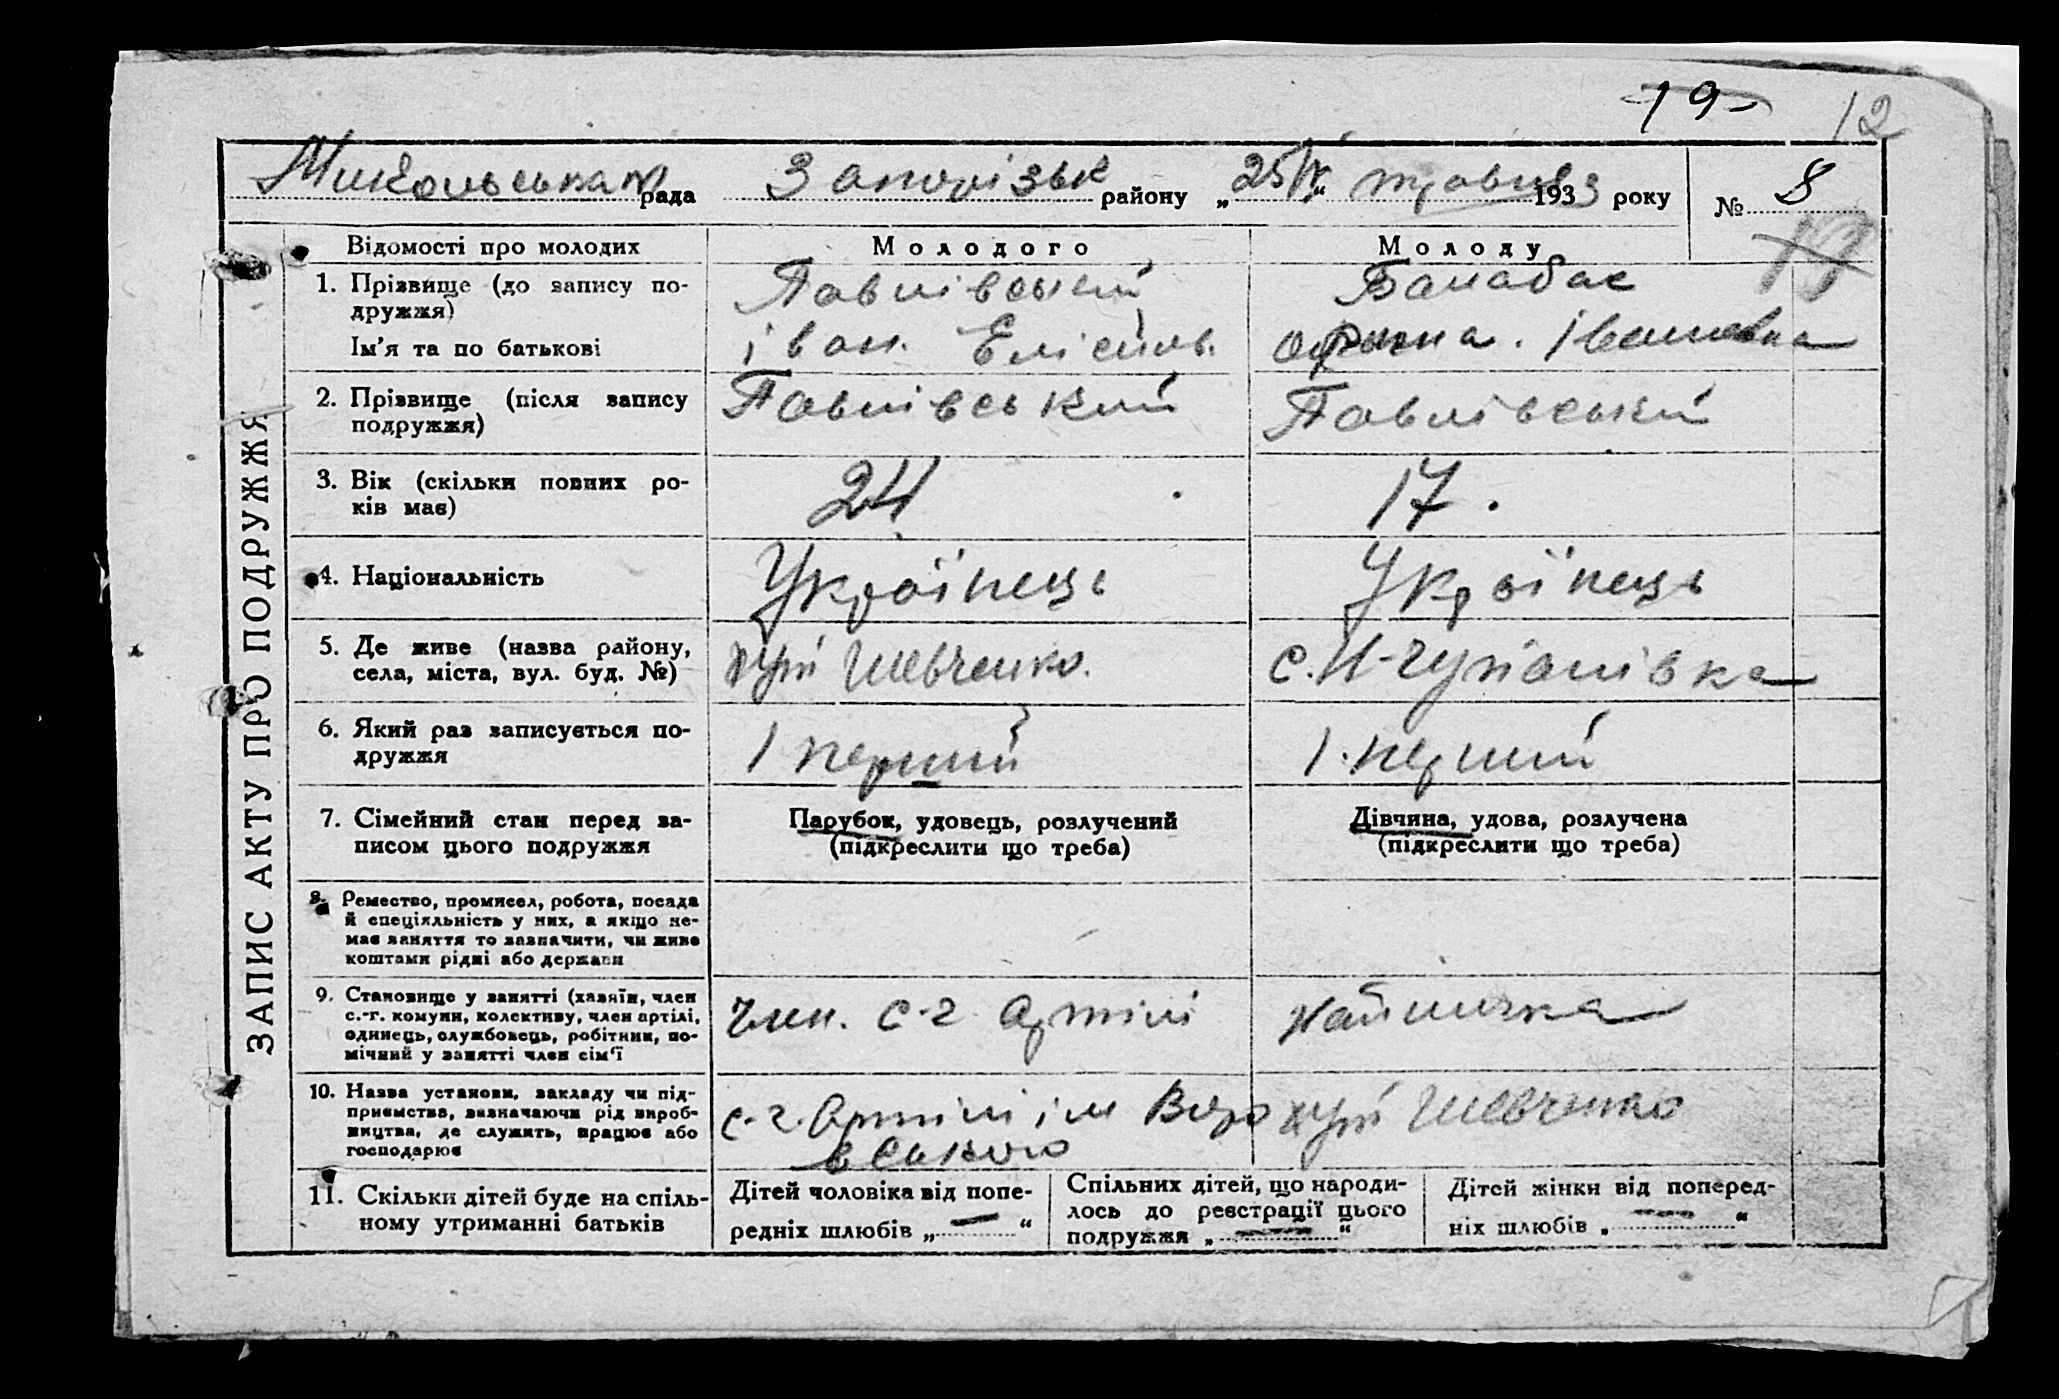 19
12
Микольська рада Запорізьк району „25/V“ травня 1933 року № 8
17
ЗАПИС АКТУ ПРО ПОДРУЖЖЯ
Відомості про молодих
Молодого
Молоду
1. Прізвище (до запису по-
дружжя)
Павлівський
Ім’я та по батькові
іван. Елісейов.
Івановна
2. Прізвище (після запису
подружжя)
Павлівський
Павлівський
3. Вік (скільки повних ро-
ків має)
24
17.
4. Національність
Українець
Українець
5. Де живе (назва району,
села, міста, вул. буд. №)
хут Шевченко.
с.
6. Який раз записується по-
дружжя
1 перший
1. перший
7. Сімейний стан перед за-
писом цього подружжя
Парубок, удовець, розлучений
(підкреслити що треба)
Дівчина, удова, розлучена
(підкреслити що треба)
8. Ремество, промисел, робота, посада
й спеціяльність у них, а якщо не-
має заняття то зазначити, чи живе
коштами рідні або держави
9. Становище у занятті (хазяїн, член
с.-г. комуни, колективу, член артілі,
одинець, службовець, робітник, по-
мічний у занятті член сім‘ї
Член. с-г артілі
наймичка
10. Назва установи, закладу чи під-
приємства, визначаючи рід вироб-
ництва, де служить, працює або
господарює
с.-г. Артілі ім Воро
вського
хут Шевченко
11. Скільки дітей буде на спіль-
ному утриманні батьків
Дітей чоловіка від попе-
редніх шлюбів „—“
Спільних дітей, що народи-
лось до реєстрації цього
подружжя „—“
Дітей жінки від поперед-
ніх шлюбів „—“